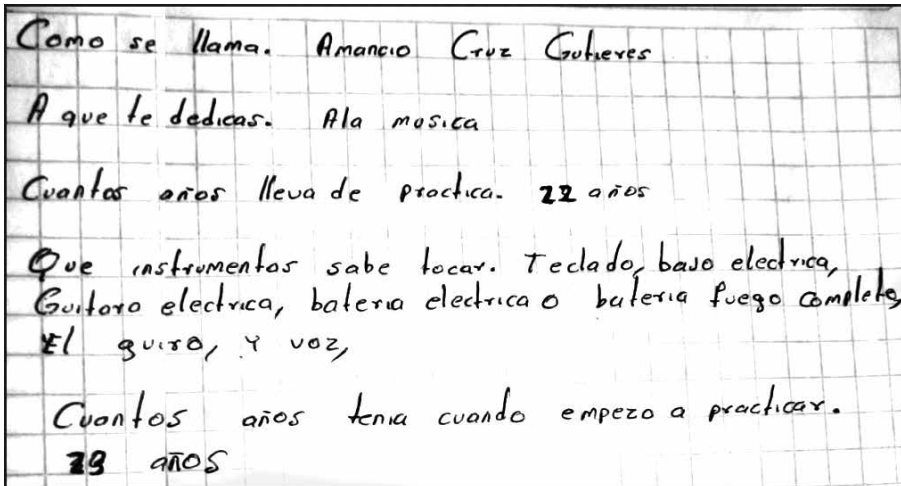 Como se llama. Amancio Cruz Gutieres
A que te dedicas. Ala musica
Cuantos años lleva de practica. 22 años
Que instrumentos sabe tocar. Teclado, bajo electrica,
Guitara electrica, bateria electrica o bateria fuego complete,
El guiro, Y voz,
Cuantos años tenia cuando empezo a practicar.
años